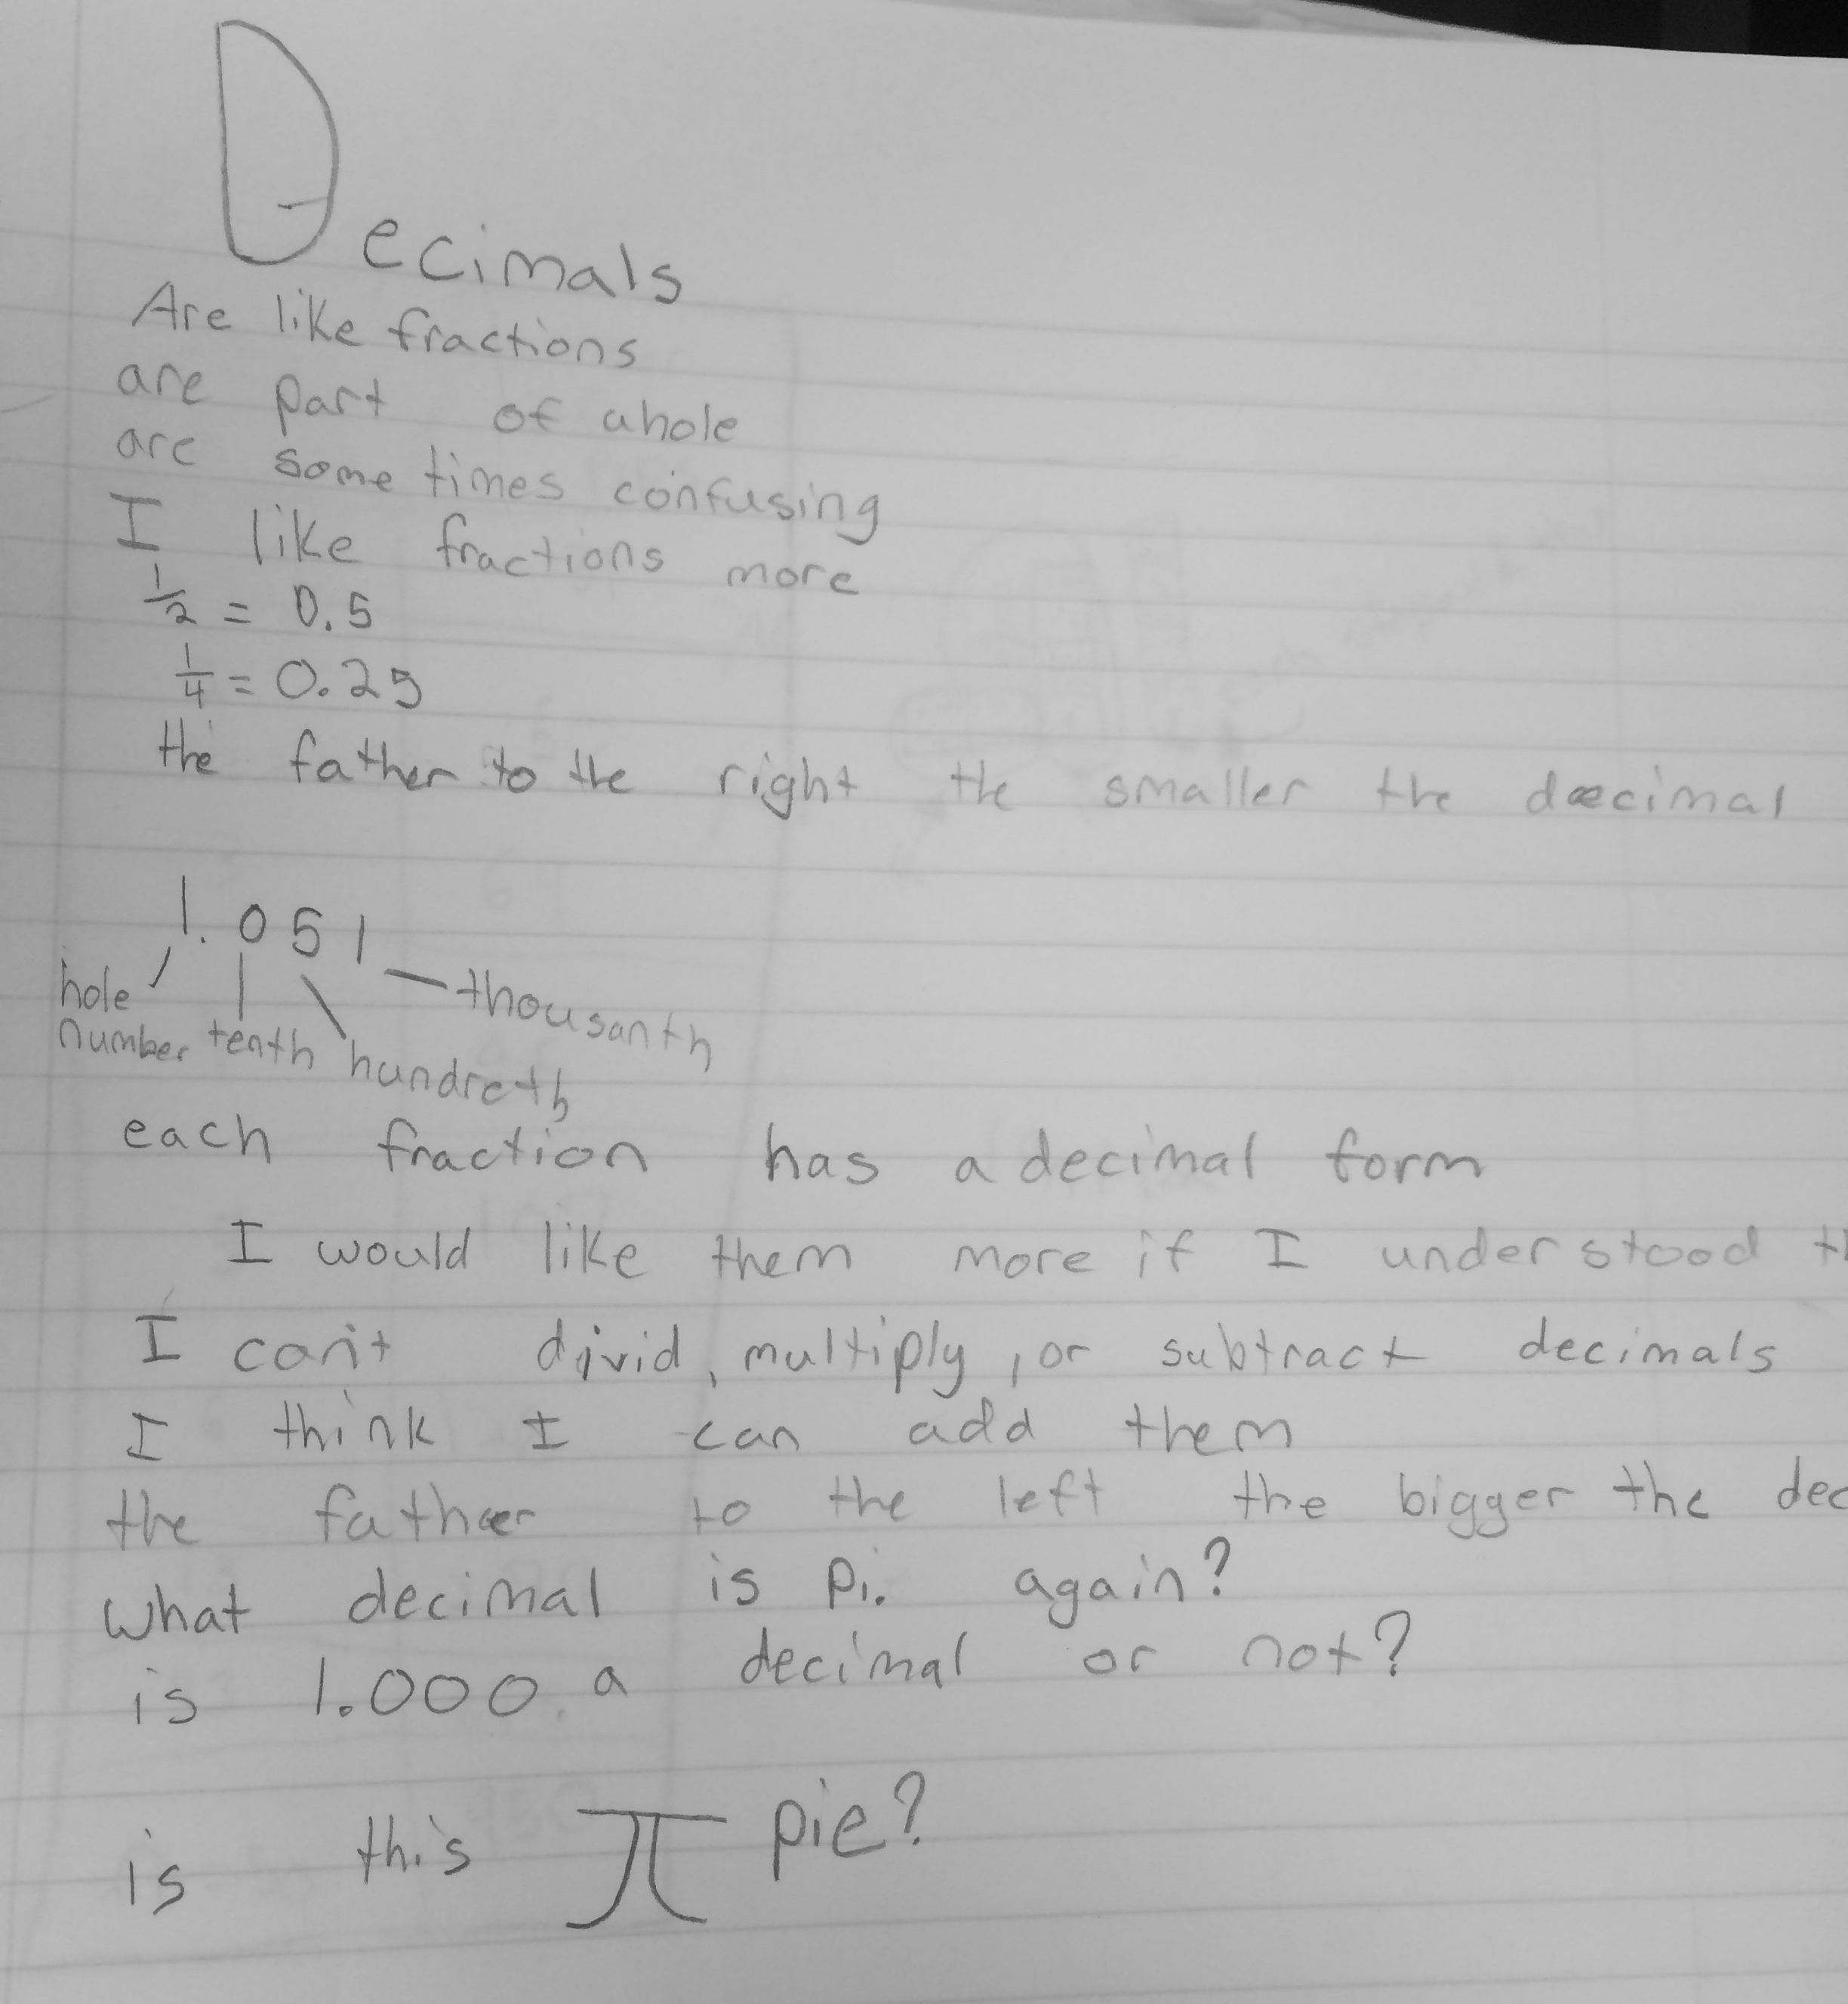 Decimals
Are like fractions
are part of ahole
are some times confusing
I like fractions more
1/2 = 0.5
1/4 = 0.25
the father to the right the smaller the decimal
1.051
hole number
tenth
hundreth
thousanth
each fraction has a decimal form
I would like them more if I understood th
I can't divid, multiply, or subtract decimals
I think I can add them
the father to the left the bigger the dec
What decimal is Pi. again?
is 1.000 a decimal or not?
is this π pie?